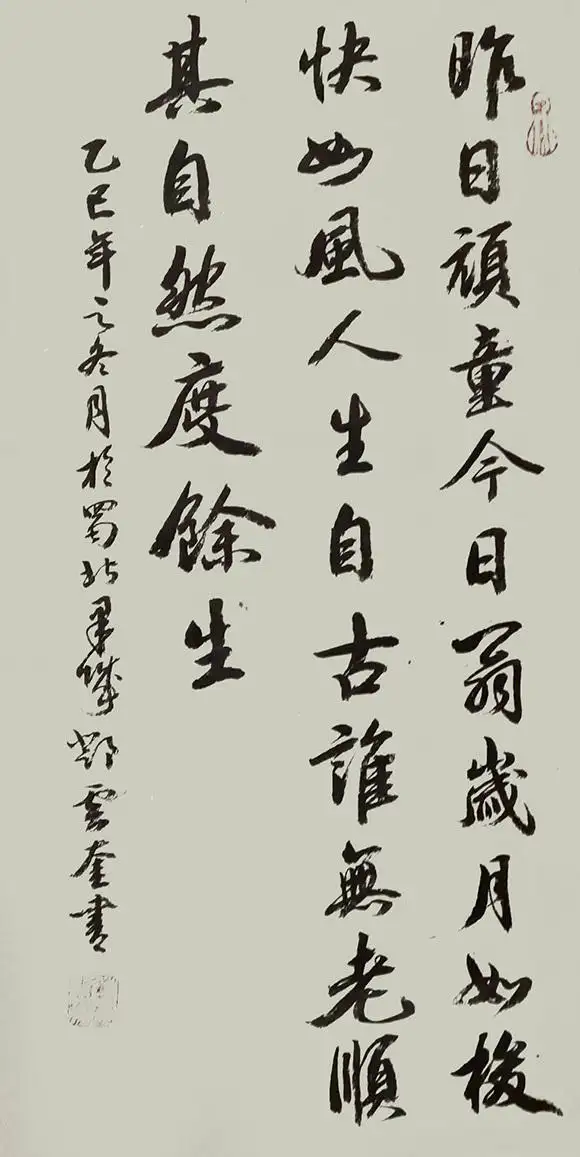 昨日頑童今日翁歲月如梭
快如風人生自古誰無老順
其自然度餘生
乙巳年之冬月於蜀北果城鄧雲奎書